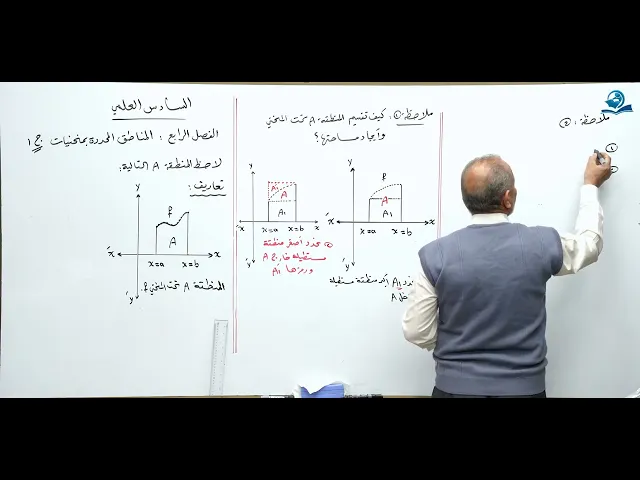 السادس العلمي
الفصل الرابع : المناطق المحددة بمنحنيات ج١
لاحظ المنطقة A التالية:
تعاريف :
y
f
A
x́ x
x=a x=b
ý
المنطقة A تحت المنحني f.
ملاحظة ①: كيف تقسيم المنطقة A تحت المنحني
وايجاد مساحتها؟
y
f
A
A₁
x́ x
x=a x=b
ý
A₁ اكبر منطقة مستطيلة
A
y
A
A₁
x x
x=a x=b
ý
② نحدد أصغر منطقة
مستطيلة خارج A
ورمزها
ملاحظة: ②
①
②